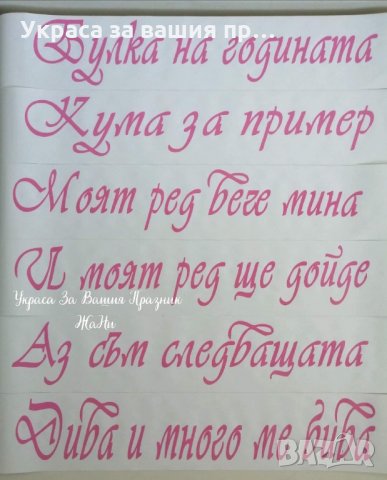 Украса за вашия пр...
Булка на годината
Кума за пример
Моят ред вече мина
И моят ред ще дойде
Украса За Вашия Празник
ЖаНи
Аз съм следващата
Дива и много ме бива
bazar